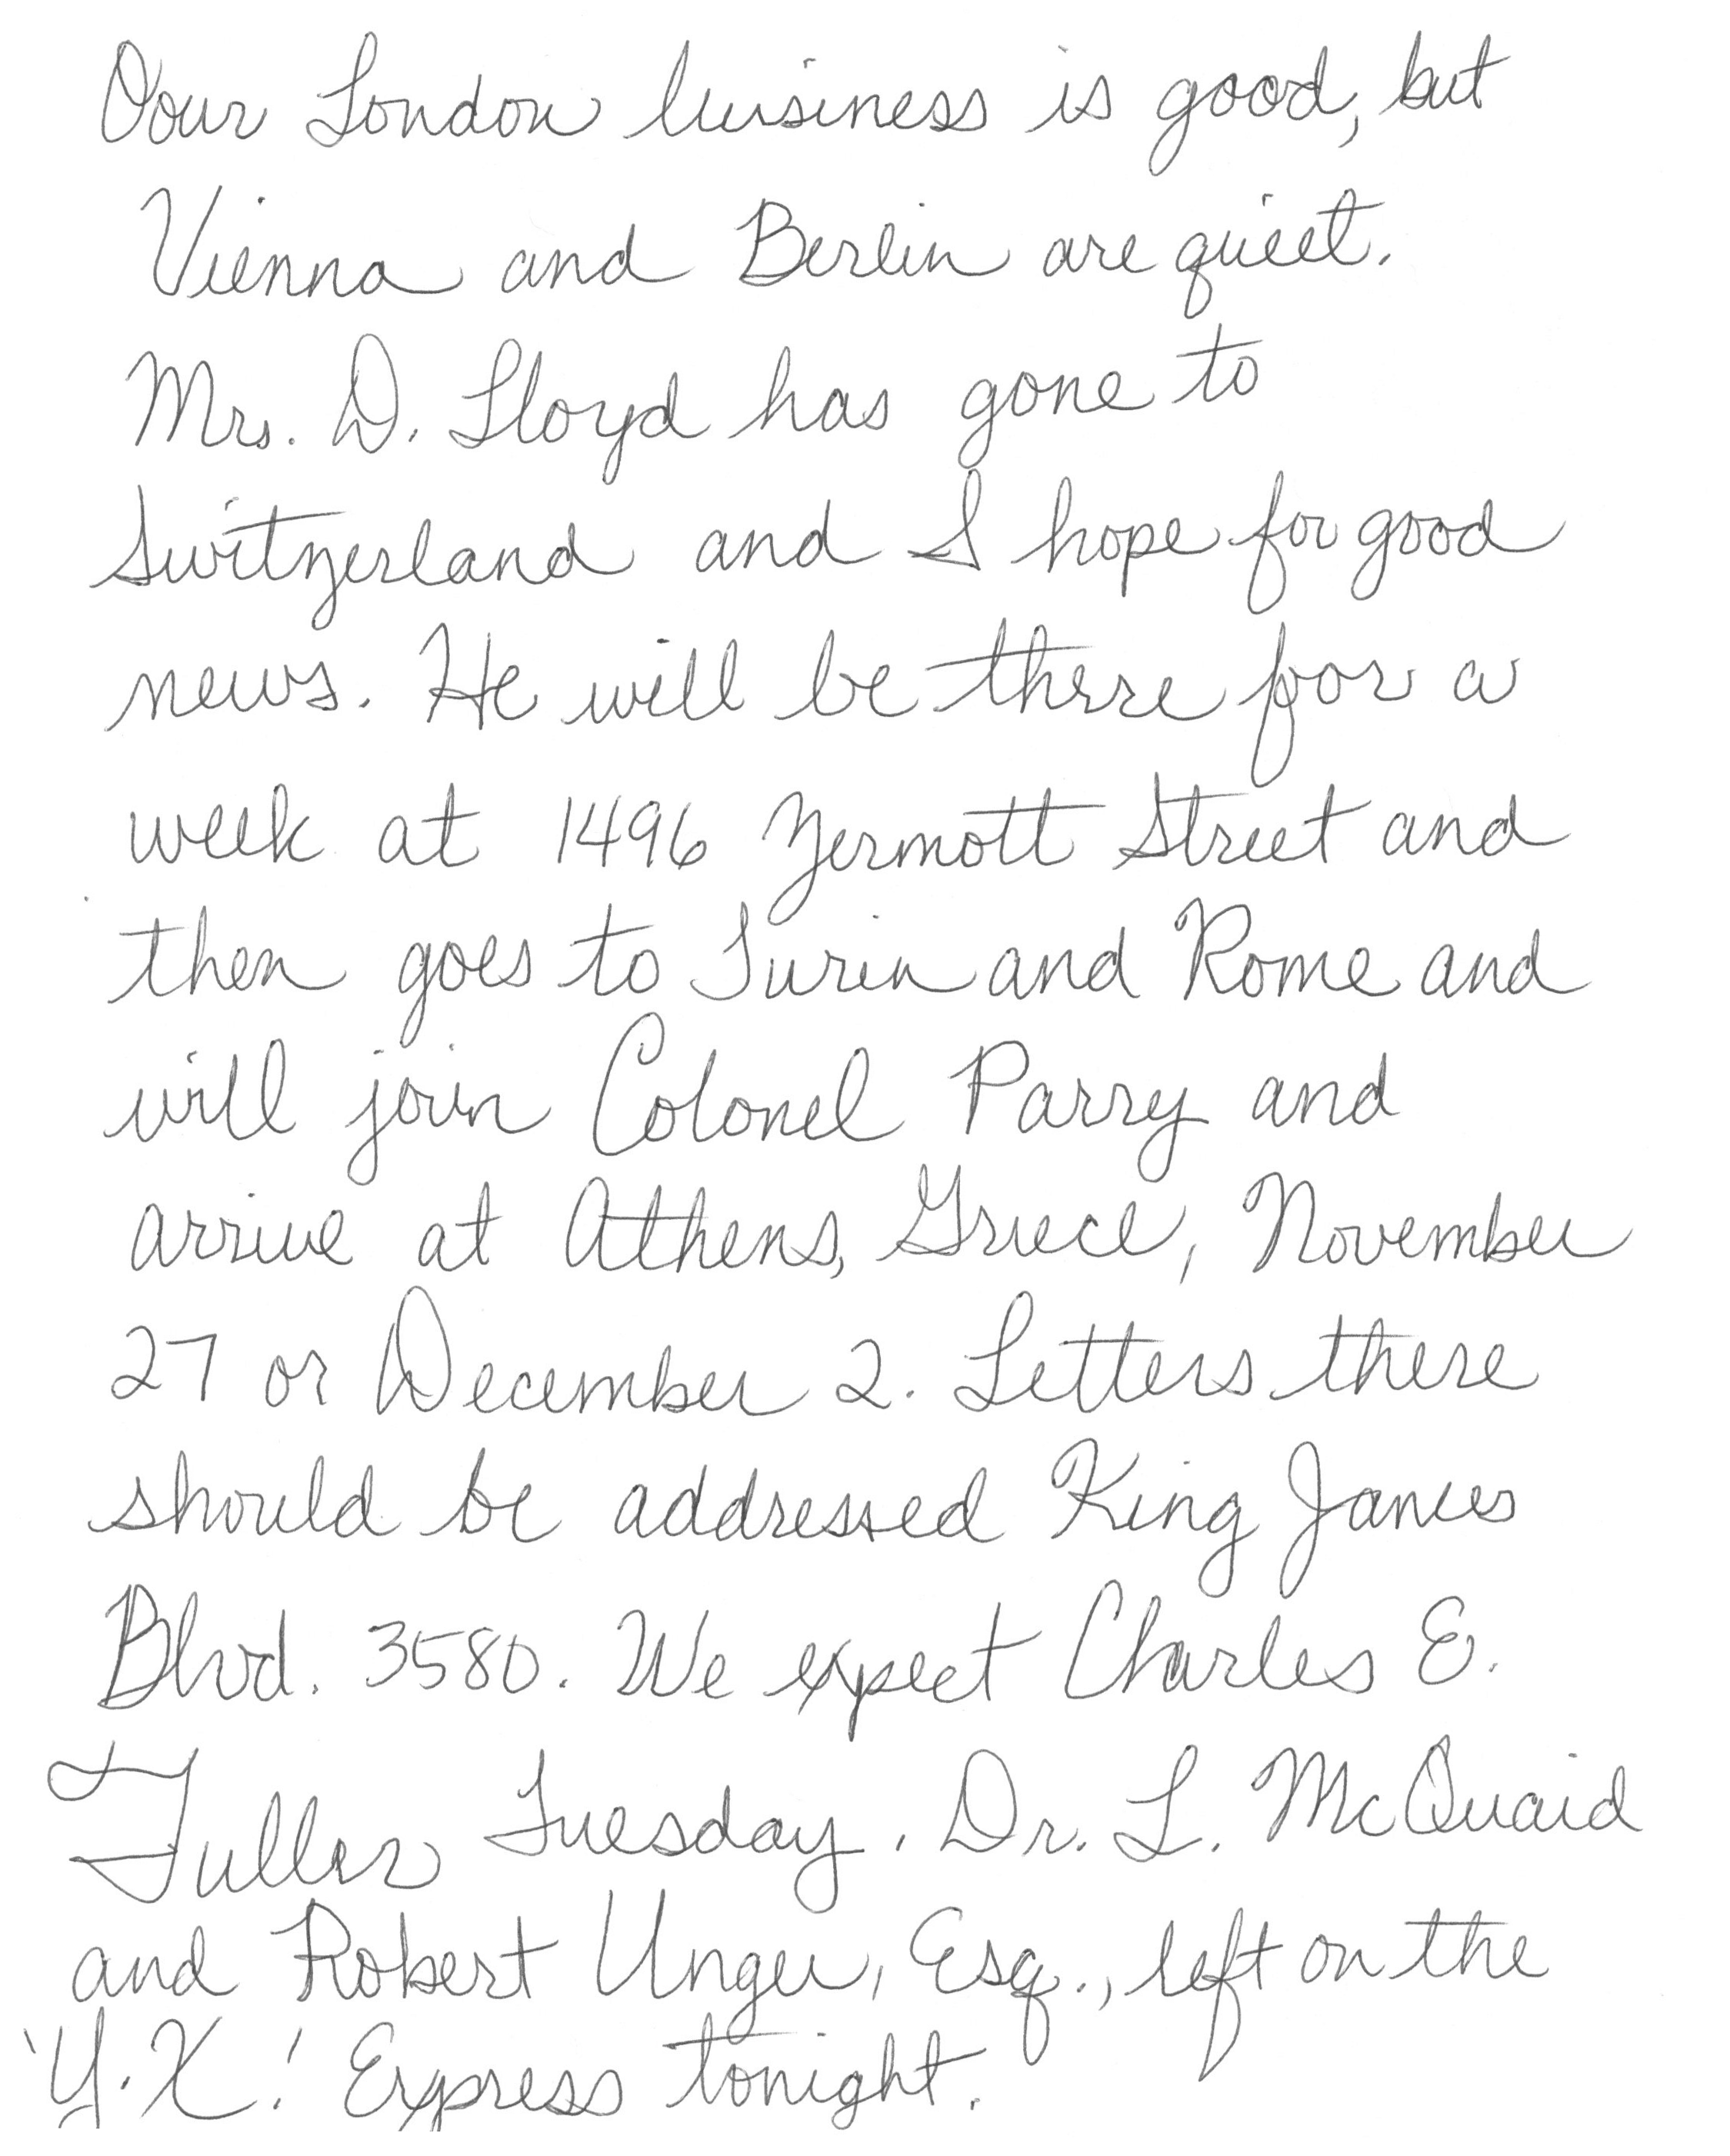 Our London business is good, but
Vienna and Berlin are quiet.
Mrs. D. Lloyd has gone to
Switzerland and I hope for good
news. He will be there for a
week at 1496 Zermott Street and
then goes to Turin and Rome and
will join Colonel Parry and
arrive at Athens, Greece, November
27 or December 2. Letters there
should be addressed King James
Blvd. 3580. We expect Charles E.
Fuller Tuesday. Dr. L. McQuaid
and Robert Unger, Esq., left on the
'Y.X.' Express tonight.